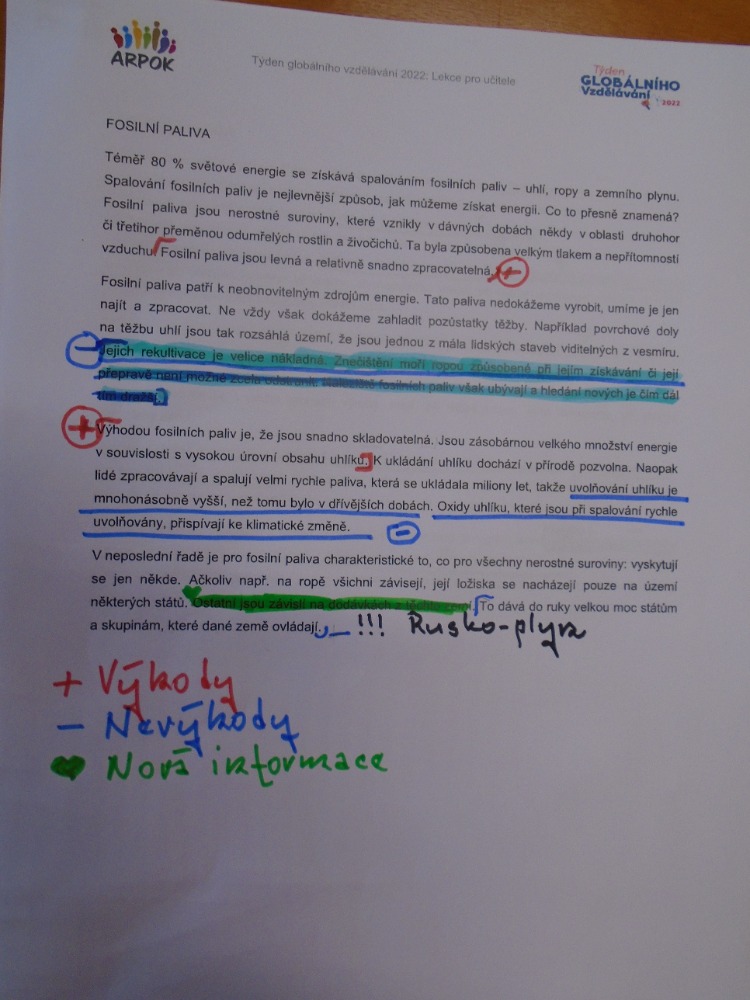 ARPOK
Týden globálního vzdělávání 2022: Lekce pro učitele
Týden
GLOBÁLNÍHO
Vzdělávání
2022
FOSILNÍ PALIVA
Téměř 80 % světové energie se získává spalováním fosilních paliv – uhlí, ropy a zemního plynu.
Spalování fosilních paliv je nejlevnější způsob, jak můžeme získat energii. Co to přesně znamená?
Fosilní paliva jsou nerostné suroviny, které vznikly v dávných dobách někdy v oblasti druhohor
či třetihor přeměnou odumřelých rostlin a živočichů. Ta byla způsobena velkým tlakem a nepřítomností
vzduchu. Fosilní paliva jsou levná a relativně snadno zpracovatelná. +
Fosilní paliva patří k neobnovitelným zdrojům energie. Tato paliva nedokážeme vyrobit, umíme je jen
najít a zpracovat. Ne vždy však dokážeme zahladit pozůstatky těžby. Například povrchové doly
na těžbu uhlí jsou tak rozsáhlá území, že jsou jednou z mála lidských staveb viditelných z vesmíru.
– Jejich rekultivace je velice nákladná. Znečištění moří ropou způsobené při jejím získávání či její
přepravě není možné zcela odstranit. Naleziště fosilních paliv však ubývají a hledání nových je čím dál
tím dražší.
+ Výhodou fosilních paliv je, že jsou snadno skladovatelná. Jsou zásobárnou velkého množství energie
v souvislosti s vysokou úrovní obsahu uhlíku. K ukládání uhlíku dochází v přírodě pozvolna. Naopak
lidé zpracovávají a spalují velmi rychle paliva, která se ukládala miliony let, takže uvolňování uhlíku je
mnohonásobně vyšší, než tomu bylo v dřívějších dobách. Oxidy uhlíku, které jsou při spalování rychle
uvolňovány, přispívají ke klimatické změně. –
V neposlední řadě je pro fosilní paliva charakteristické to, co pro všechny nerostné suroviny: vyskytují
se jen někde. Ačkoliv např. na ropě všichni závisejí, její ložiska se nacházejí pouze na území
některých států. Ostatní jsou závislí na dodávkách z těchto zemí. To dává do ruky velkou moc státům
a skupinám, které dané země ovládají. – !!! Rusko-plyn
+ Výhody
– Nevýhody
♥ Nová informace